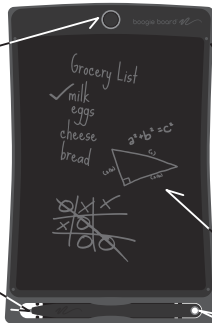 boogie board
Grocery List
✓ milk
eggs
cheese
bread
a²+b²=c²